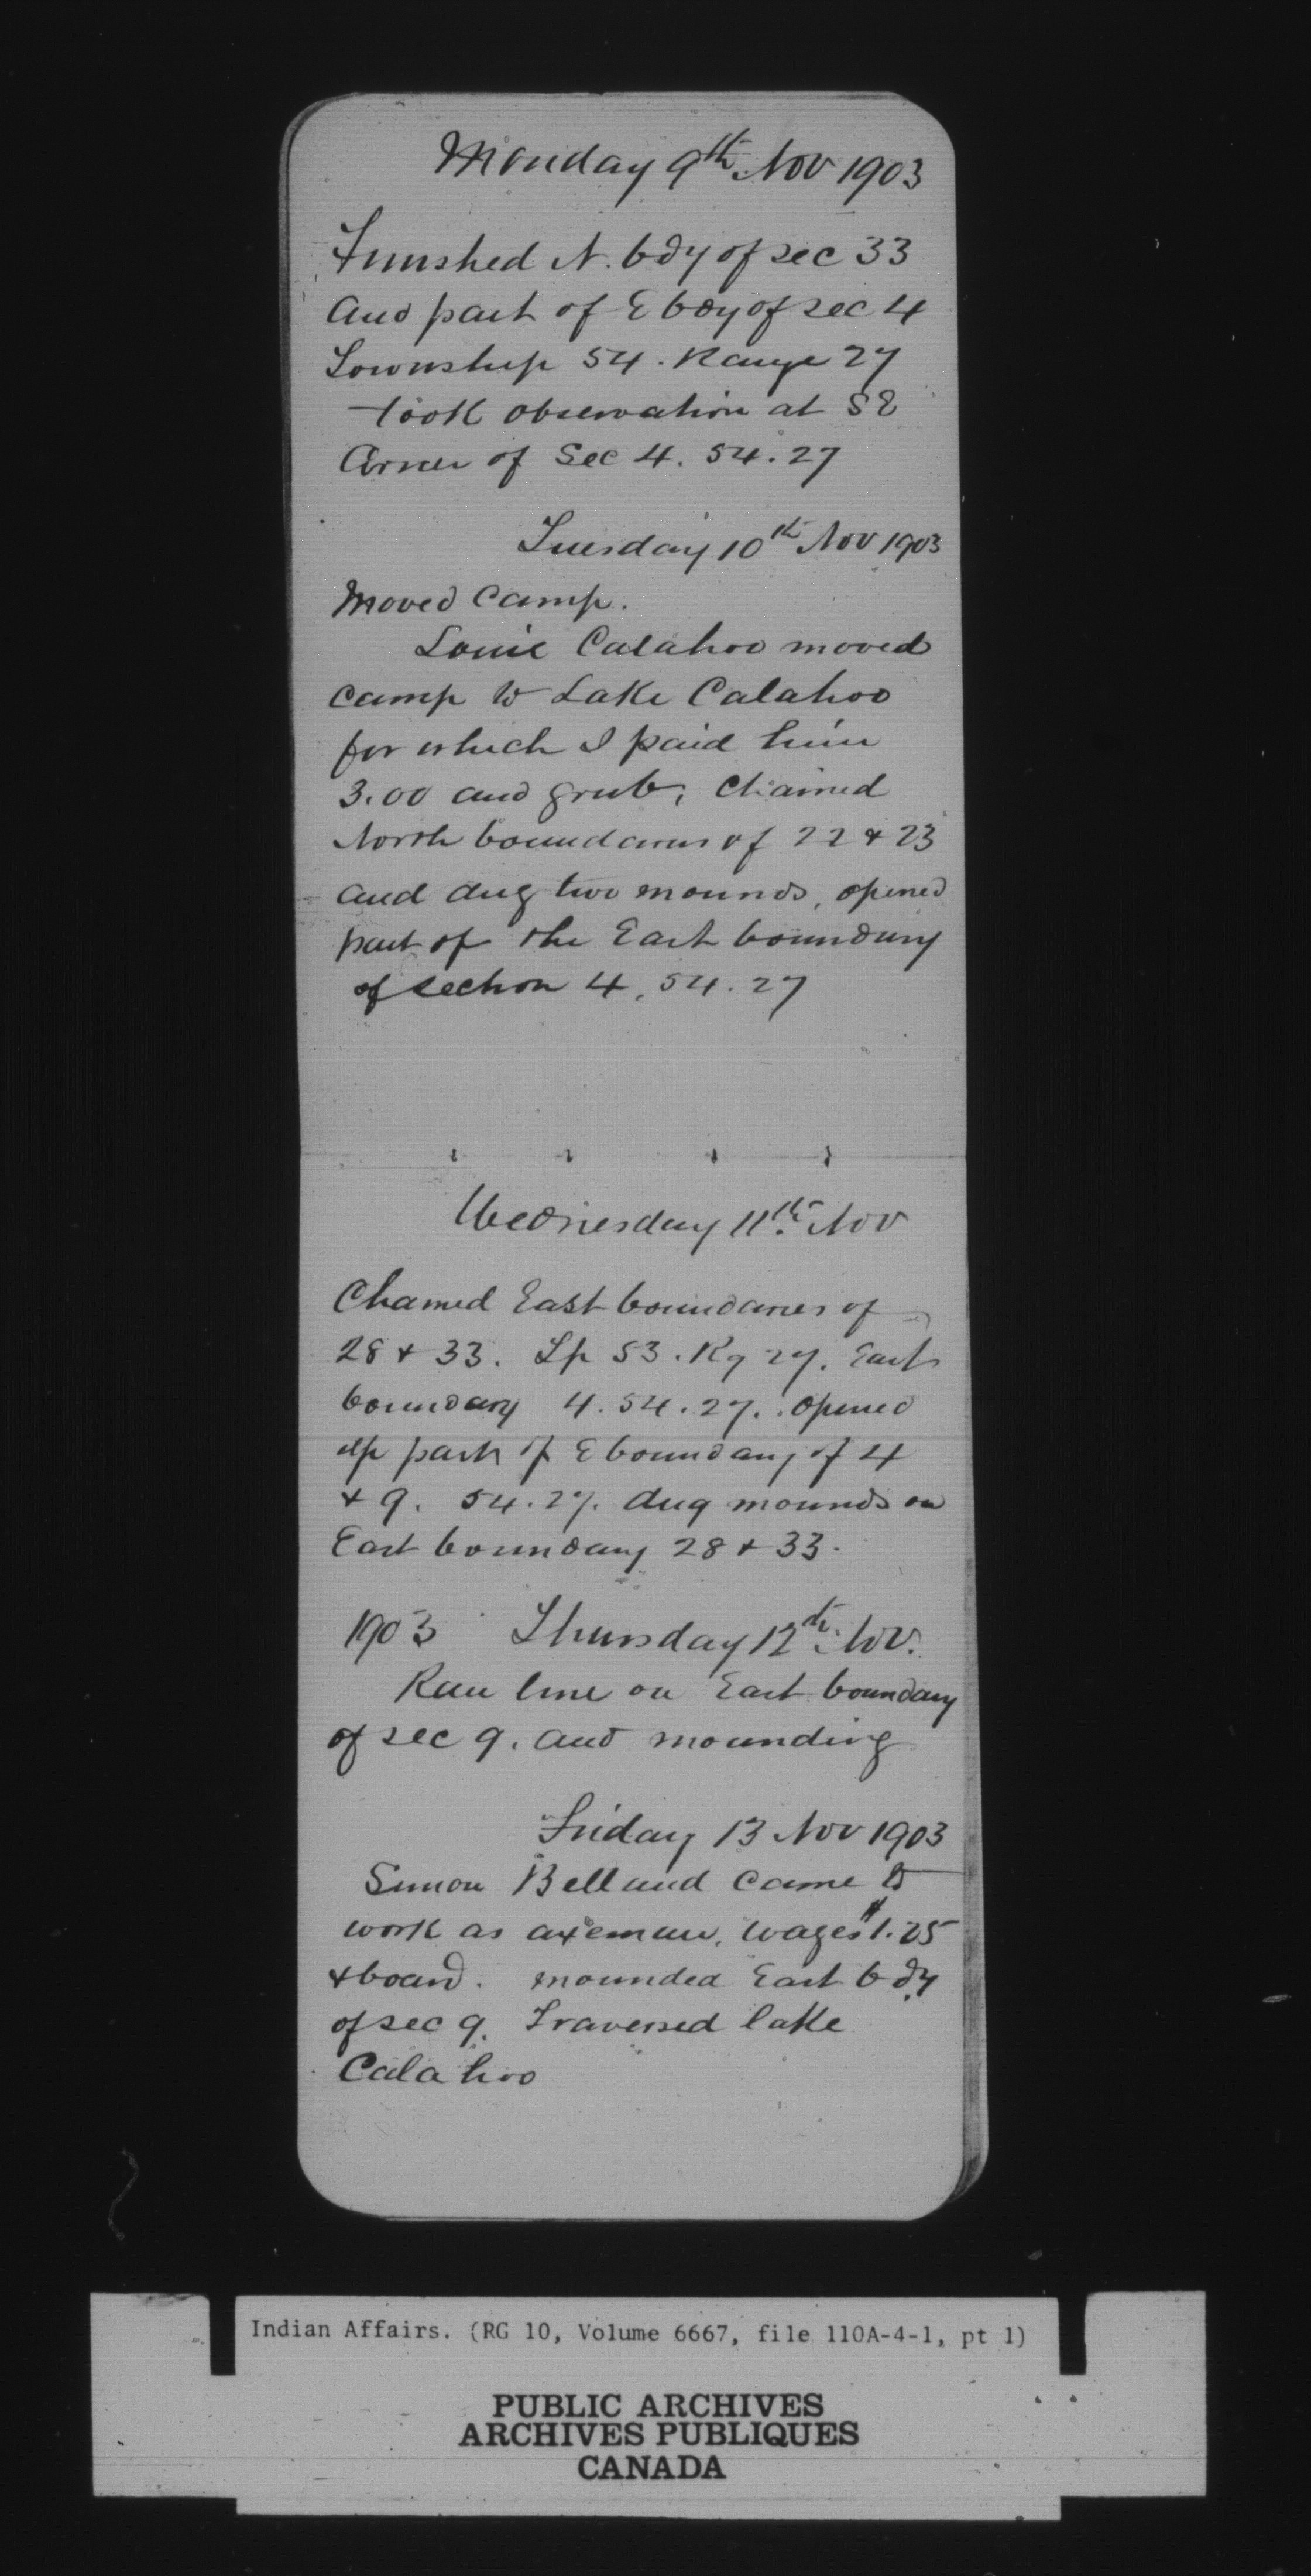 Monday 9th Nov 1903
Finished N. bdy of sec 33
and part of E bdy of sec 4
Township 54. Range 27
took observation at SE
Corner of Sec 4. 54. 27
Tuesday 10th Nov 1903
Moved Camp.
Louie Calahoo moved
camp to Lake Calahoo
for which I paid him
3.00 and grub, Chained
North boundaries of 22 & 23
and dug two mounds, opened
part of the East boundary
of section 4, 54. 27
Wednesday 11th Nov
Chained East boundaries of
28 & 33. Tp 53. Rg 27. East
boundary 4. 54. 27. Opened
up part of E boundary of 4
& 9. 54. 27. dug mounds on
East boundary 28 & 33.
1903 Thursday 12th Nov.
Ran line on East boundary
of sec 9. and mounding
Friday 13 Nov 1903
Simon Belland came to
work as axeman, wages $1.25
& board. mounded East bdy
of sec 9. Traversed lake
Calahoo
Indian Affairs. (RG 10, Volume 6667, file 110A-4-1, pt 1)
PUBLIC ARCHIVES
ARCHIVES PUBLIQUES
CANADA